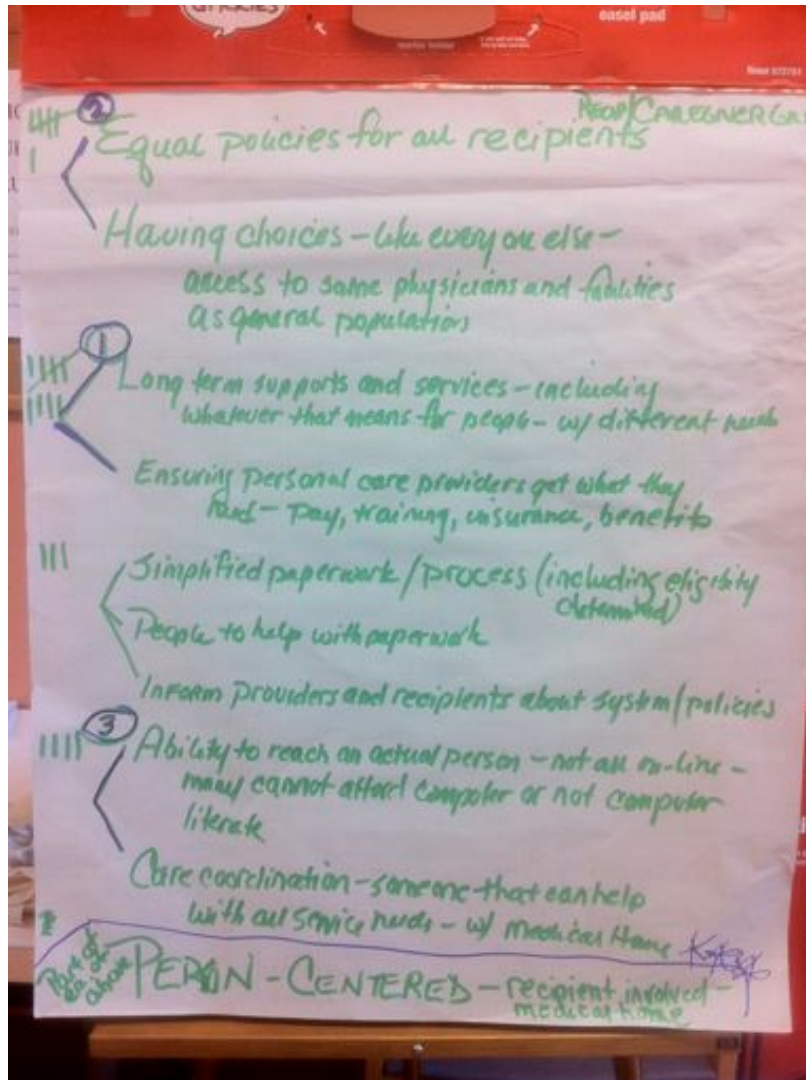 easel pad
RECIP/CAREGIVER GR
2
Equal policies for all recipients
Having choices - like everyone else -
access to same physicians and facilities
as general population
1
Long term supports and services - including
whatever that means for people - w/ different needs
Ensuring personal care providers get what they
need - pay, training, insurance, benefits
Simplified paperwork / process (including eligibility
People to help with paperwork
Inform providers and recipients about system/policies
3
Ability to reach an actual person - not all on-line -
many cannot afford computer or not computer
literate
Care coordination - someone that can help
with all service needs - w/ medical Home
Part of
ea. of
above
PERSON - CENTERED - recipient involved -
medical home